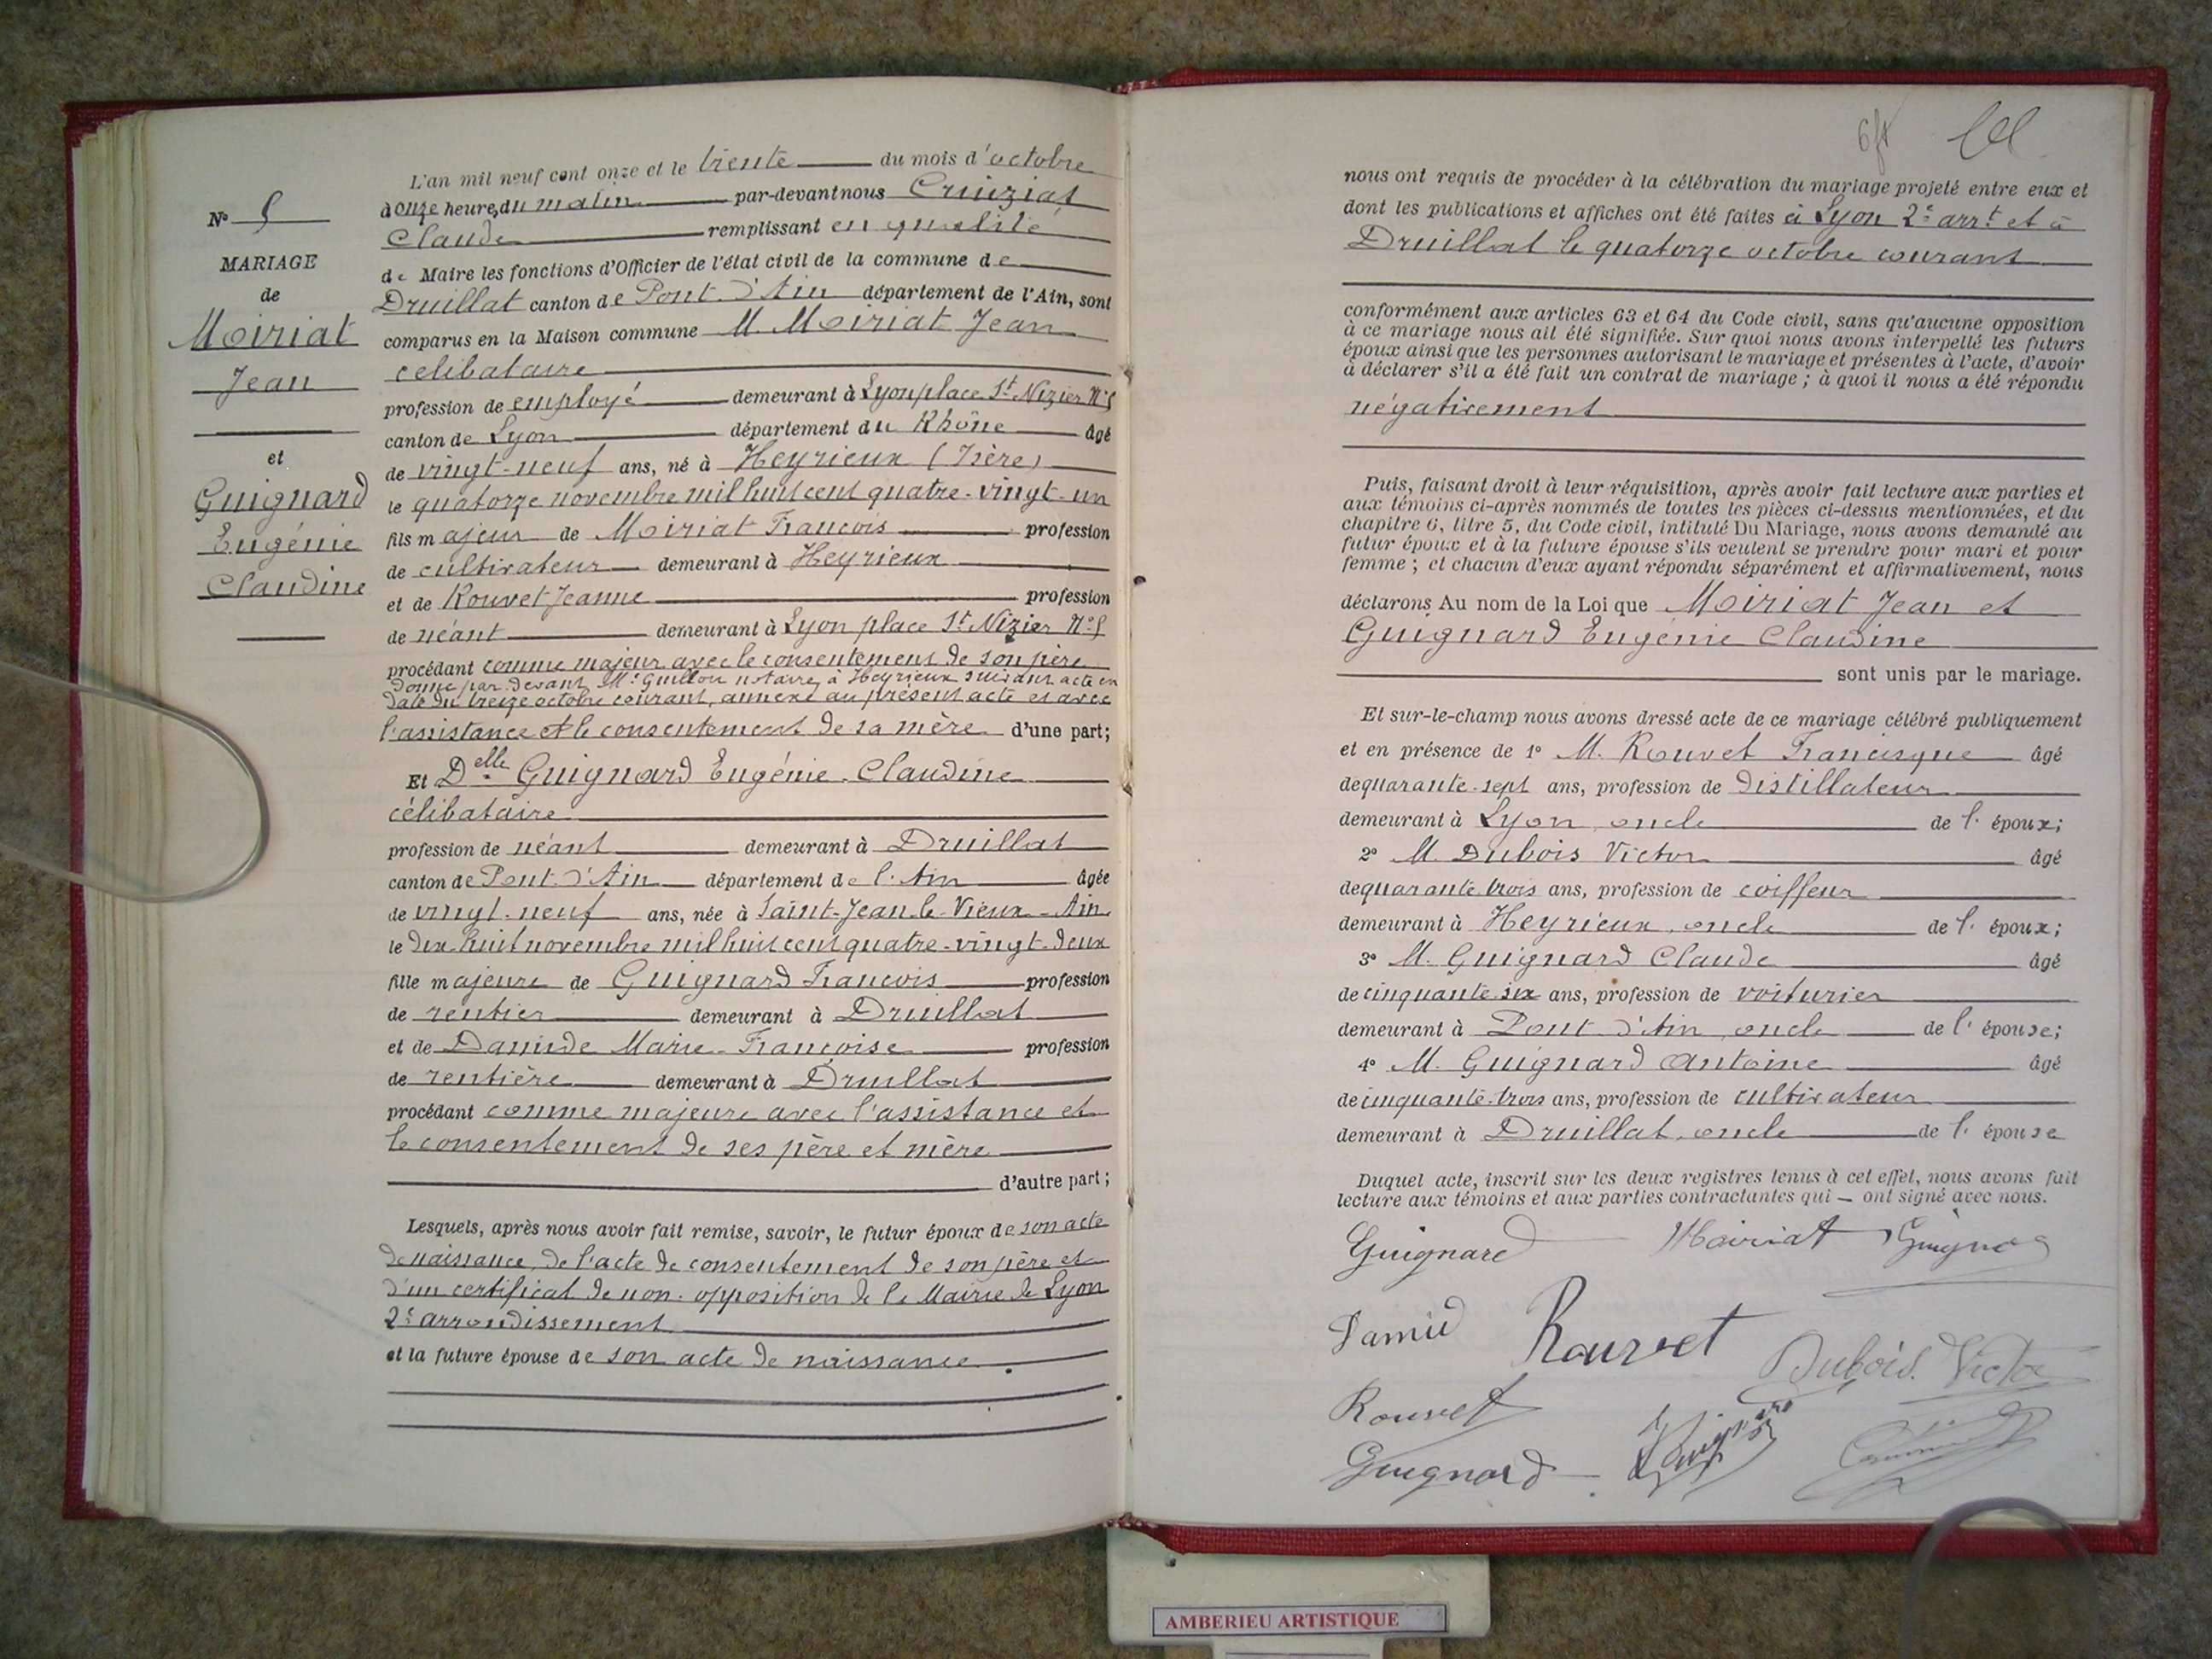 N° 5
MARIAGE
de
Moiriat
Jean
et
Guignard
Eugénie
Claudine
L'an mil neuf cent onze et le trente du mois d'octobre
à onze heures du matin par-devant nous Cruiziat
Claude remplissant en qualité
de Maire les fonctions d'Officier de l'état civil de la commune de
Druillat canton de Pont d'Ain département de l'Ain, sont
comparus en la Maison commune M. Moiriat Jean
célibataire
profession de employé demeurant à Lyon place St Nizier N°5
canton de Lyon département du Rhône âgé
de vingt-neuf ans, né à Heyrieux (Isère)
le quatorze novembre mil huit cent quatre-vingt-un
fils majeur de Moiriat François profession
de cultivateur demeurant à Heyrieux
et de Rouvet Jeanne profession
de néant demeurant à Lyon place St Nizier N°5
procédant comme majeur avec le consentement de son père
donné par devant Me Guillon notaire à Heyrieux suivant acte en
date du treize octobre courant, annexé au présent acte et avec
l'assistance et le consentement de sa mère d'une part;
Et Delle Guignard Eugénie Claudine
célibataire
profession de néant demeurant à Druillat
canton de Pont d'Ain département de l'Ain âgée
de vingt-neuf ans, née à Saint-Jean-le-Vieux - Ain
le dix huit novembre mil huit cent quatre-vingt-deux
fille majeure de Guignard François profession
de rentier demeurant à Druillat
et de Damide Marie-Françoise profession
de rentière demeurant à Druillat
procédant comme majeure avec l'assistance et
le consentement de ses père et mère
d'autre part;
Lesquels, après nous avoir fait remise, savoir, le futur époux de son acte
de naissance, de l'acte de consentement de son père et
d'un certificat de non-opposition de la Mairie de Lyon
2e arrondissement
et la future épouse de son acte de naissance
nous ont requis de procéder à la célébration du mariage projeté entre eux et
dont les publications et affiches ont été faites à Lyon 2e arrt et à
Druillat le quatorze octobre courant
conformément aux articles 63 et 64 du Code civil, sans qu'aucune opposition
à ce mariage nous ait été signifiée. Sur quoi nous avons interpellé les futurs
époux ainsi que les personnes autorisant le mariage et présentes à l'acte, d'avoir
à déclarer s'il a été fait un contrat de mariage; à quoi il nous a été répondu
négativement
Puis, faisant droit à leur réquisition, après avoir fait lecture aux parties et
aux témoins ci-après nommés de toutes les pièces ci-dessus mentionnées, et du
chapitre 6, titre 5, du Code civil, intitulé Du Mariage, nous avons demandé au
futur époux et à la future épouse s'ils veulent se prendre pour mari et pour
femme; et chacun d'eux ayant répondu séparément et affirmativement, nous
déclarons Au nom de la Loi que Moiriat Jean et
Guignard Eugénie Claudine
sont unis par le mariage.
Et sur-le-champ nous avons dressé acte de ce mariage célébré publiquement
et en présence de 1° M. Rouvet Francisque âgé
de quarante-sept ans, profession de distillateur
demeurant à Lyon, oncle de l'époux;
2° M. Dubois Victor âgé
de quarante trois ans, profession de coiffeur
demeurant à Heyrieux, oncle de l'époux;
3° M. Guignard Claude âgé
de cinquante six ans, profession de voiturier
demeurant à Pont d'Ain, oncle de l'épouse;
4° M. Guignard Antoine âgé
de cinquante-trois ans, profession de cultivateur
demeurant à Druillat, oncle de l'épouse
Duquel acte, inscrit sur les deux registres tenus à cet effet, nous avons fait
lecture aux témoins et aux parties contractantes qui ont signé avec nous.
Guignard Moiriat Guignard
Damid Rouvet Dubois Victor
Rouvet
Guignard
AMBERIEU ARTISTIQUE